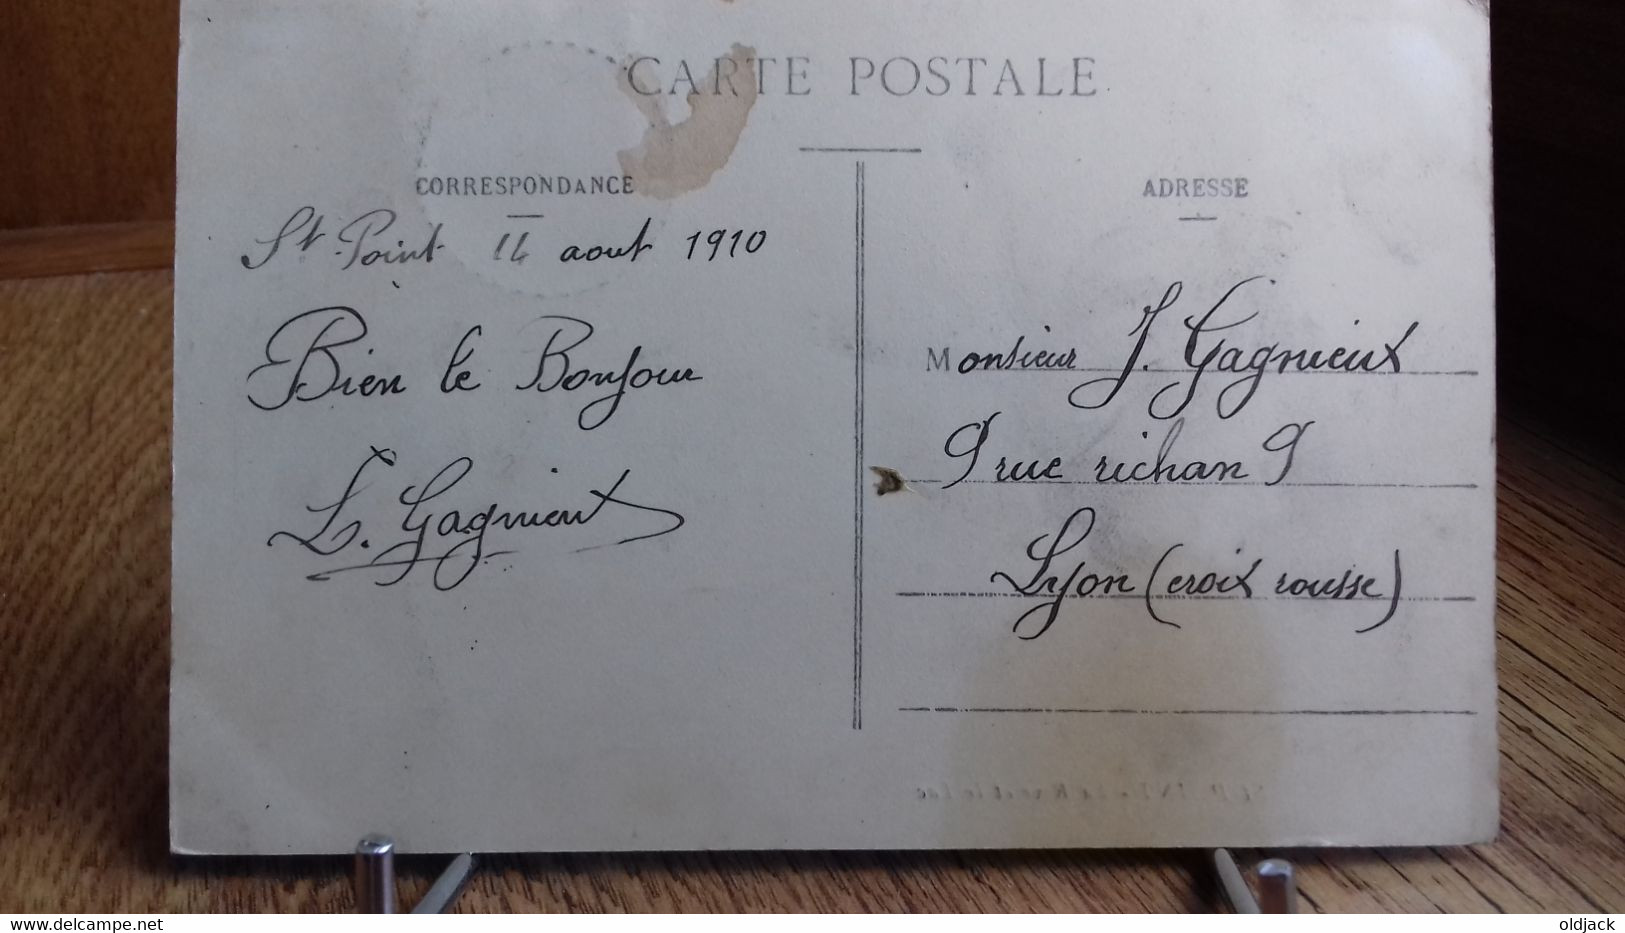 CARTE POSTALE
CORRESPONDANCE
St Point 14 aout 1910
Bien le Bonjour
L. Gagnieux
ADRESSE
Monsieur J. Gagnieux
9 rue richan 9
Lyon (croix rousse)
delcampe.net
oldjack